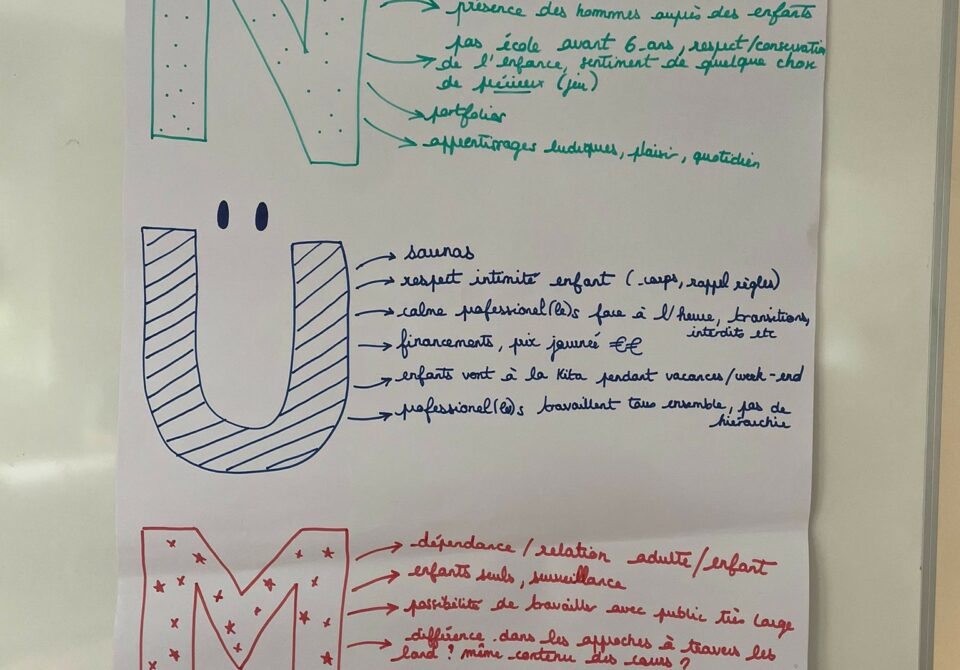 N
présence des hommes auprès des enfants
pas école avant 6 ans, respect/conservation
de l'enfance, sentiment de quelque chose
de précieux (jeu)
portfolios
apprentissages ludiques, plaisir, quotidien
Ü
saunas
respect intimité enfant (corps, rappel règles)
calme professionel(le)s face à l'heure, transitions,
interdits etc
financements, prix journée €€
enfants vont à la Kita pendant vacances/week-end
professionel(le)s travaillent tous ensemble, pas de
hiérarchie
M
dépendance/relation adulte/enfant
enfants seuls, surveillance
possibilité de travailler avec public très large
différence dans les approches à travers les
land? même contenu des cours?